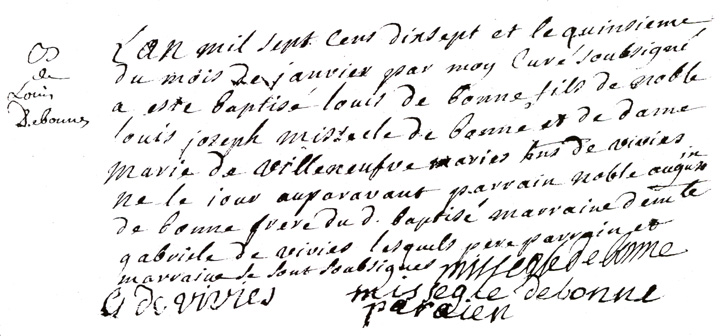 B
de
Louis
Debonne
L'an mil sept cens dixsept et le quinsieme
du mois de janvier par moy Curé soubsigné
a esté baptisé louis de bonne, fils de noble
louis joseph missecle de bonne et de dame
marie de villeneufve maries hns de vivies
ne le jour auparavant parrain noble
de bonne frere du d. baptisé marraine demlle
gabriele de vivies lesquels pere parrain et
marraine se sont soubsignes missegle de bonne
G de vivies missegle debonne
paraien